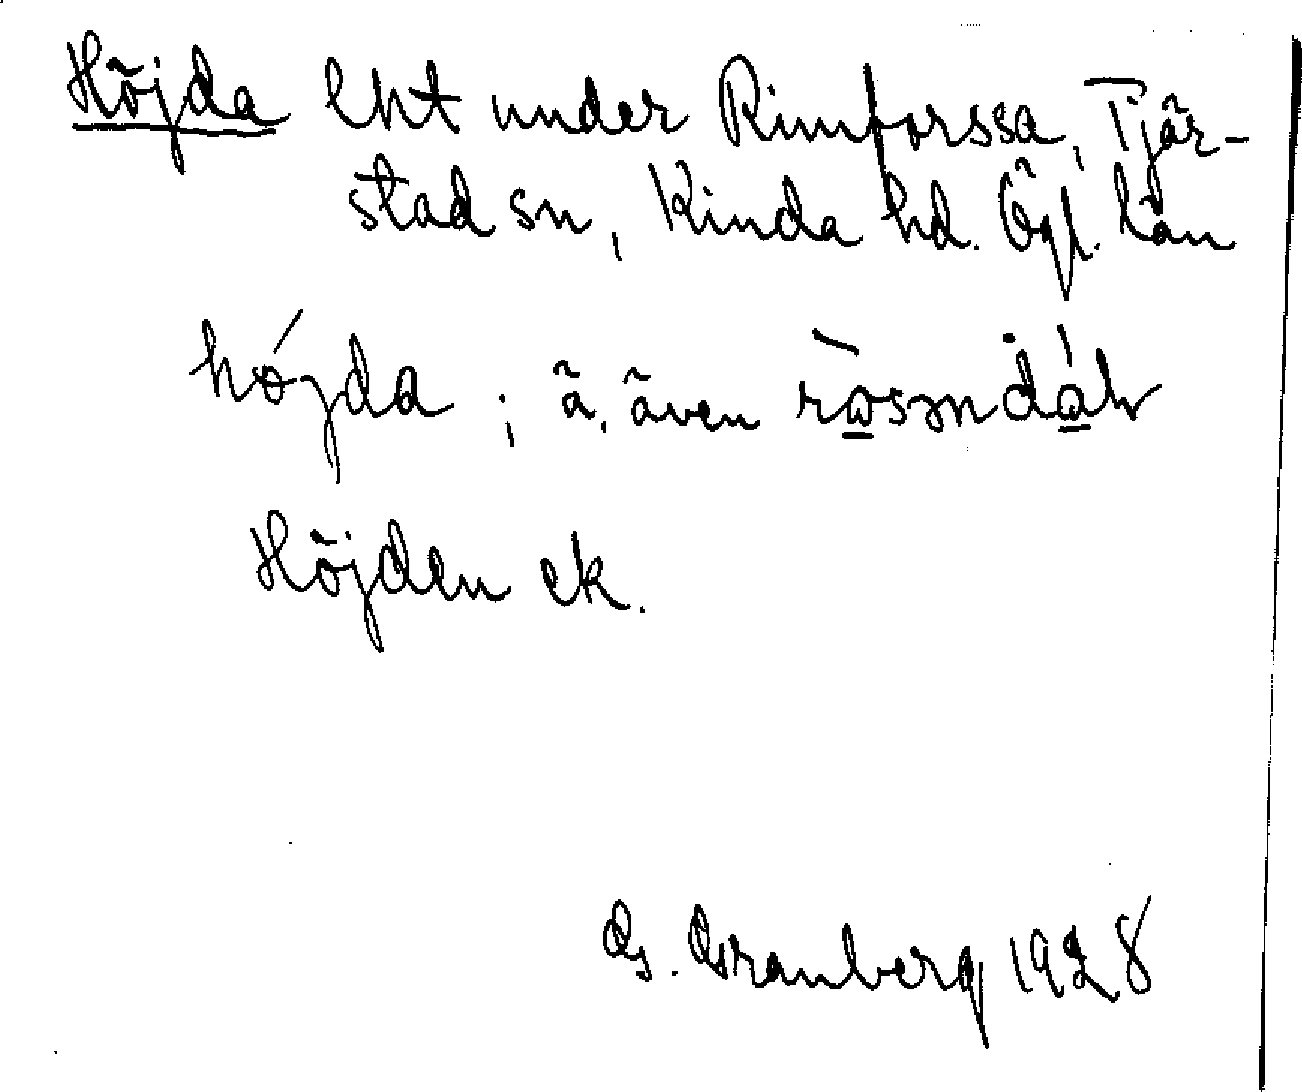 Höjda lht under Rimforssa, Tjär-
stad sn, Kinda hd. Ögl. län
hǿjda ; ä. även
Höjden ek.
G. Granberg 1928